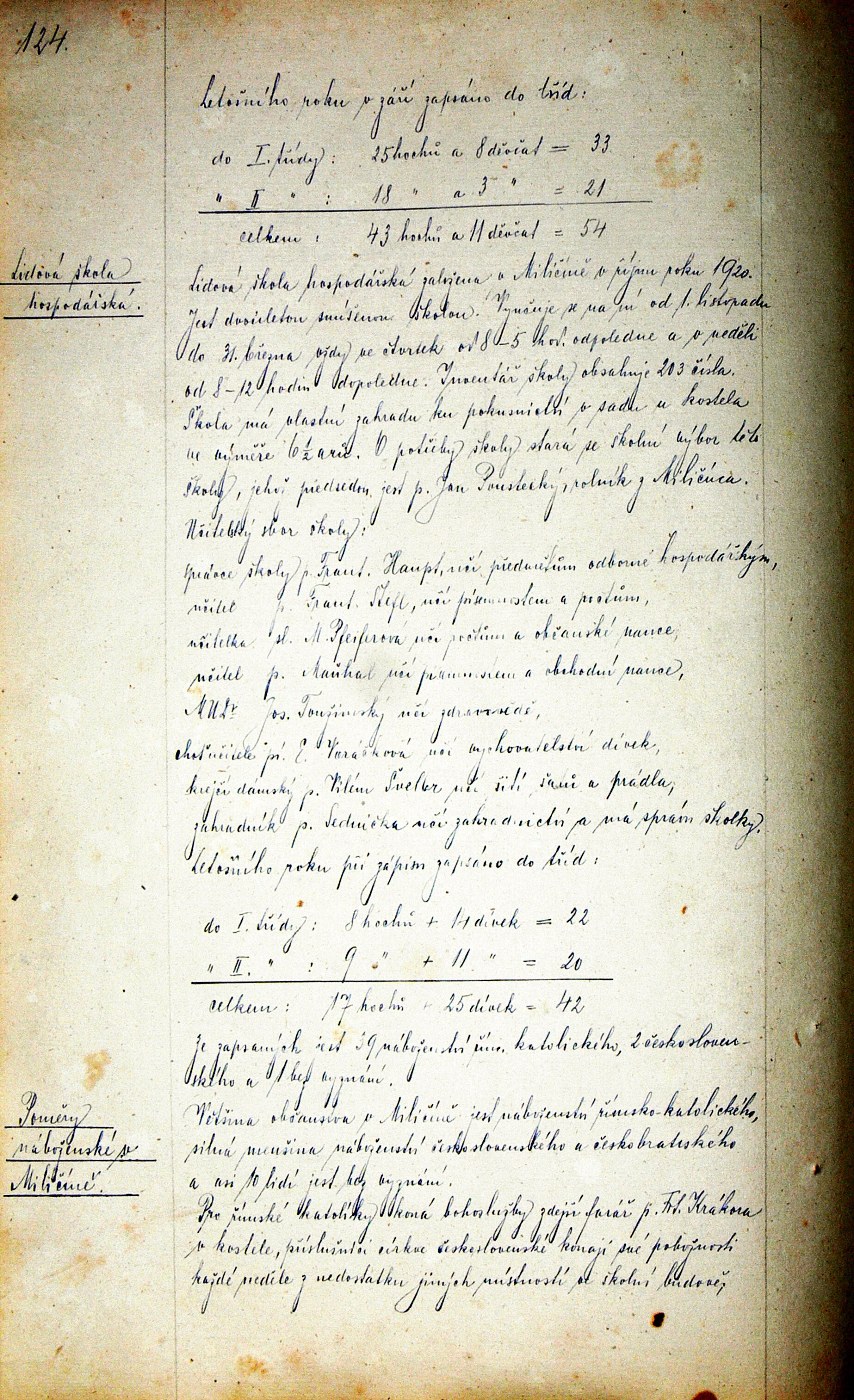 124.
Letošního roku v září zapsáno do tříd:
do I. třídy: 25 hochů a 8 děvčat = 33
" II " : 18 " a 3 " = 21
celkem: 43 hochů a 11 děvčat = 54
Lidová škola
hospodářská.
Lidová škola hospodářská založena v Miličíně v říjnu roku 1920.
Jest dvouletou smíšenou školou. Vyučuje se na ní od 1. listopadu
do 31. března vždy ve čtvrtek od 8–5 hod. odpoledne a v neděli
od 8–12 hodin dopoledne. Inventář školy obsahuje 203 čísla.
Škola má vlastní zahradu ku pokusnictví v sadu u kostela
ve výměře 6 1/2 arů. O potřeby školy stará se školní výbor této
školy, jehož předsedou jest p. Jan Poustecký, rolník z Miličína.
Učitelský sbor školy:
správce školy p. Frant. Haupt, učí předmětům odborně hospodářským,
učitel p. Frant. Štefl, učí písemnostem a počtům,
učitelka sl. M. Pfeiferová učí počtům a občanské nauce,
učitel p. Mauhal učí písemnostem a obchodní nauce,
MUDr Jos. Toužimský učí zdravovědě,
choť učitele pí. E. Vorášková učí vychovatelství dívek,
krejčí dámský p. Vilém Šveller učí šití šatů a prádla,
zahradník p. Sednička učí zahradnictví a má správu školky.
Letošního roku při zápisu zapsáno do tříd:
do I. třídy: 8 hochů + 14 dívek = 22
" II. " : 9 " + 11 " = 20
celkem: 17 hochů + 25 dívek = 42
Ze zapsaných jest 39 náboženství řím. katolického, 2 českosloven-
ského a 1 bez vyznání.
Poměry
náboženské v
Miličíně.
Většina občanstva v Miličíně jest náboženství římsko-katolického,
silná menšina náboženství československého a českobratrského
a asi 10 lidí jest bez vyznání.
Pro římské katolíky koná bohoslužby zdejší farář p. Fr. Krákora
v kostele, příslušníci církve československé konají své pobožnosti
každé neděle z nedostatku jiných místností ve školní budově,